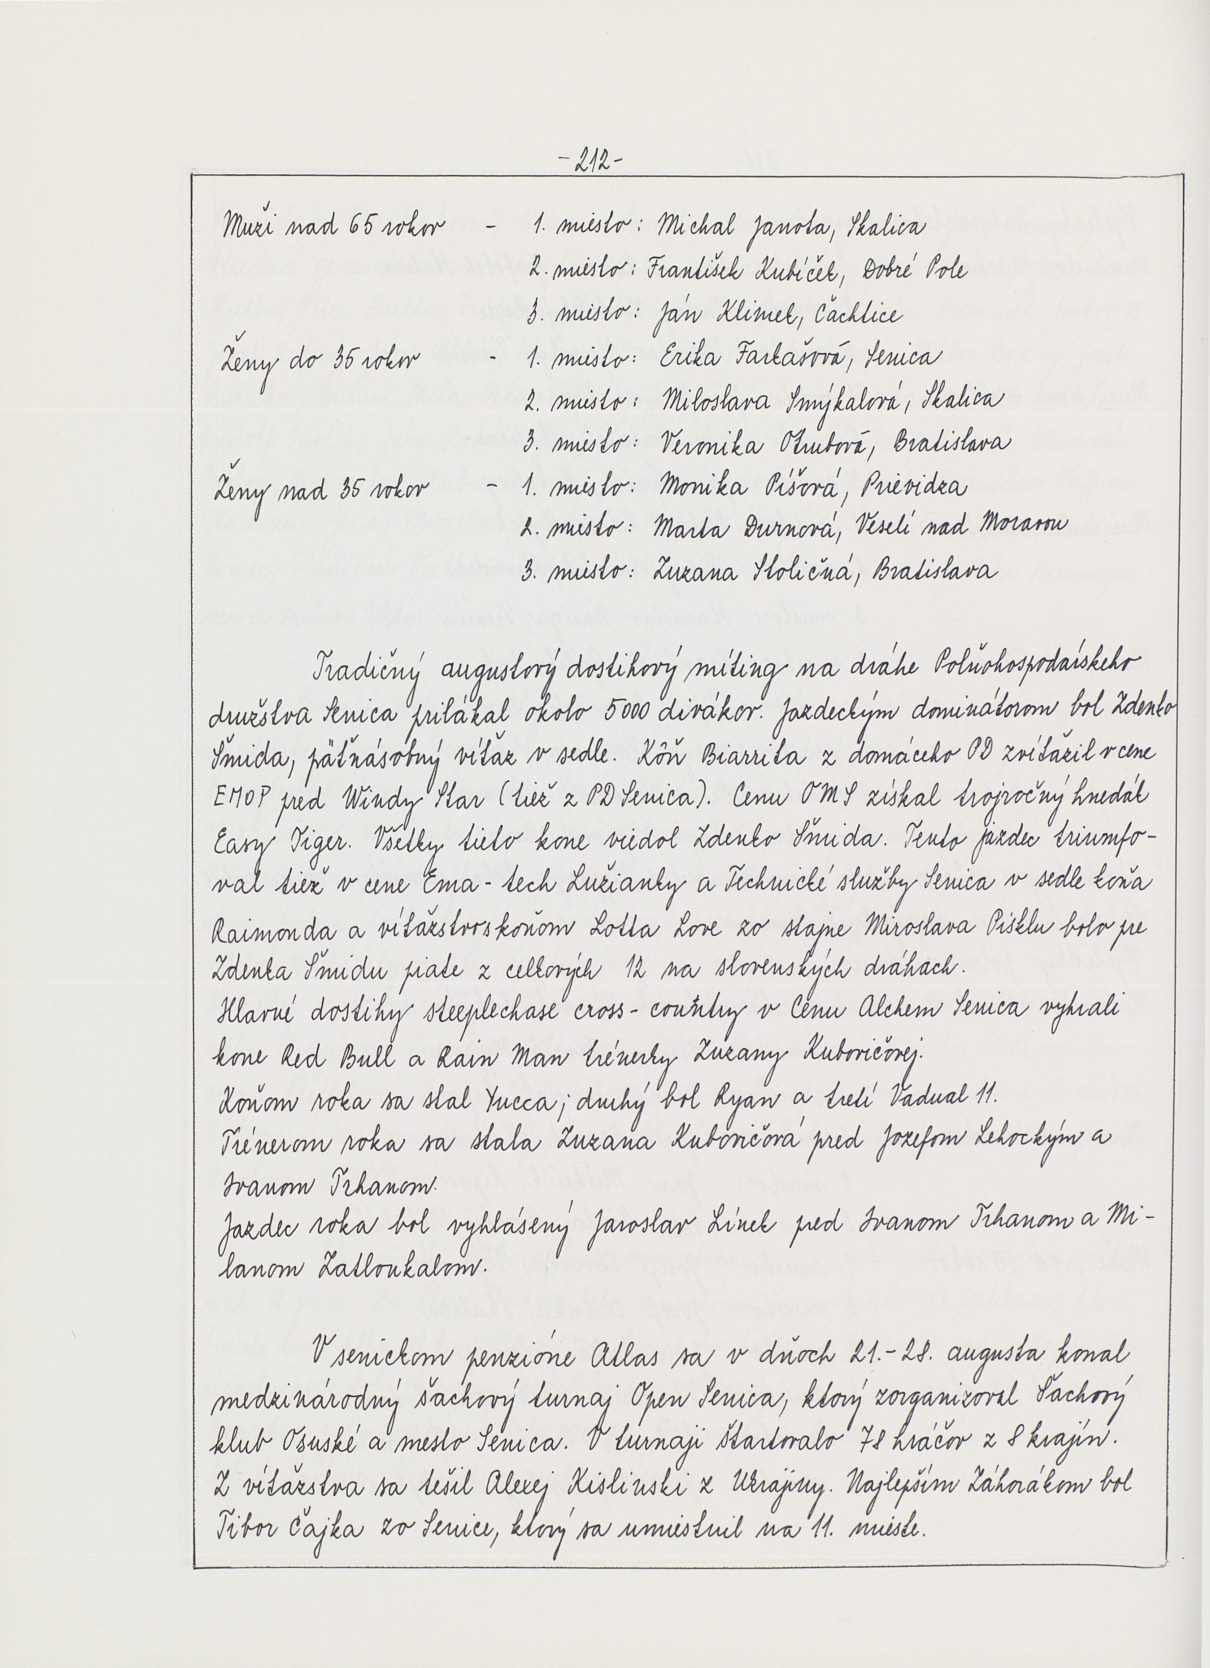 -212-
Muži nad 65 rokov - 1. miesto: Michal Janota, Skalica
2. miesto: František Kubíček, Dobré Pole
3. miesto: Ján Klimek, Čachtice
Ženy do 35 rokov - 1. miesto: Erika Farkašová, Senica
2. miesto: Miloslava Smýkalová, Skalica
3. miesto: Veronika Otrubová, Bratislava
Ženy nad 35 rokov - 1. miesto: Monika Píšová, Prievidza
2. miesto: Marta Durnová, Veselí nad Moravou
3. miesto: Zuzana Stoličná, Bratislava
Tradičný augustový dostihový míting na dráhe Poľnohospodárskeho
družstva Senica prilákal okolo 5000 divákov. Jazdeckým dominátorom bol Zdenko
Šmida, päťnásobný víťaz v sedle. Kôň Biarrita z domáceho PD zvíťazil v cene
EMOP pred Windy Star (tiež z PD Senica). Cenu OMS získal trojročný hnedák
Easy Tiger. Všetky tieto kone viedol Zdenko Šmida. Tento jazdec triumfo-
val tiež v cene Ema-tech Lužianky a Technické služby Senica v sedle koňa
Raimonda a víťazstvo s koňom Lotta Love zo stajne Miroslava Pisklu bolo pre
Zdenka Šmidu piate z celkových 12 na slovenských dráhach.
Hlavné dostihy steeplechase cross-country v Cenu Alchem Senica vyhrali
kone Red Bull a Rain Man trénerky Zuzany Kubovičovej.
Koňom roka sa stal Yucca; druhý bol Ryan a tretí Vadual 11.
Trénerom roka sa stala Zuzana Kubovičová pred Jozefom Lehockým a
Ivanom Trhanom.
Jazdec roka bol vyhlásený Jaroslav Línek pred Ivanom Trhanom a Mi-
lanom Zatloukalom.
V senickom penzióne Atlas sa v dňoch 21.-28. augusta konal
medzinárodný šachový turnaj Open Senica, ktorý zorganizoval Šachový
klub Osuské a mesto Senica. V turnaji štartovalo 78 hráčov z 8 krajín.
Z víťazstva sa tešil Alexej Kislinski z Ukrajiny. Najlepším Záhorákom bol
Tibor Čajka zo Senice, ktorý sa umiestnil na 11. mieste.